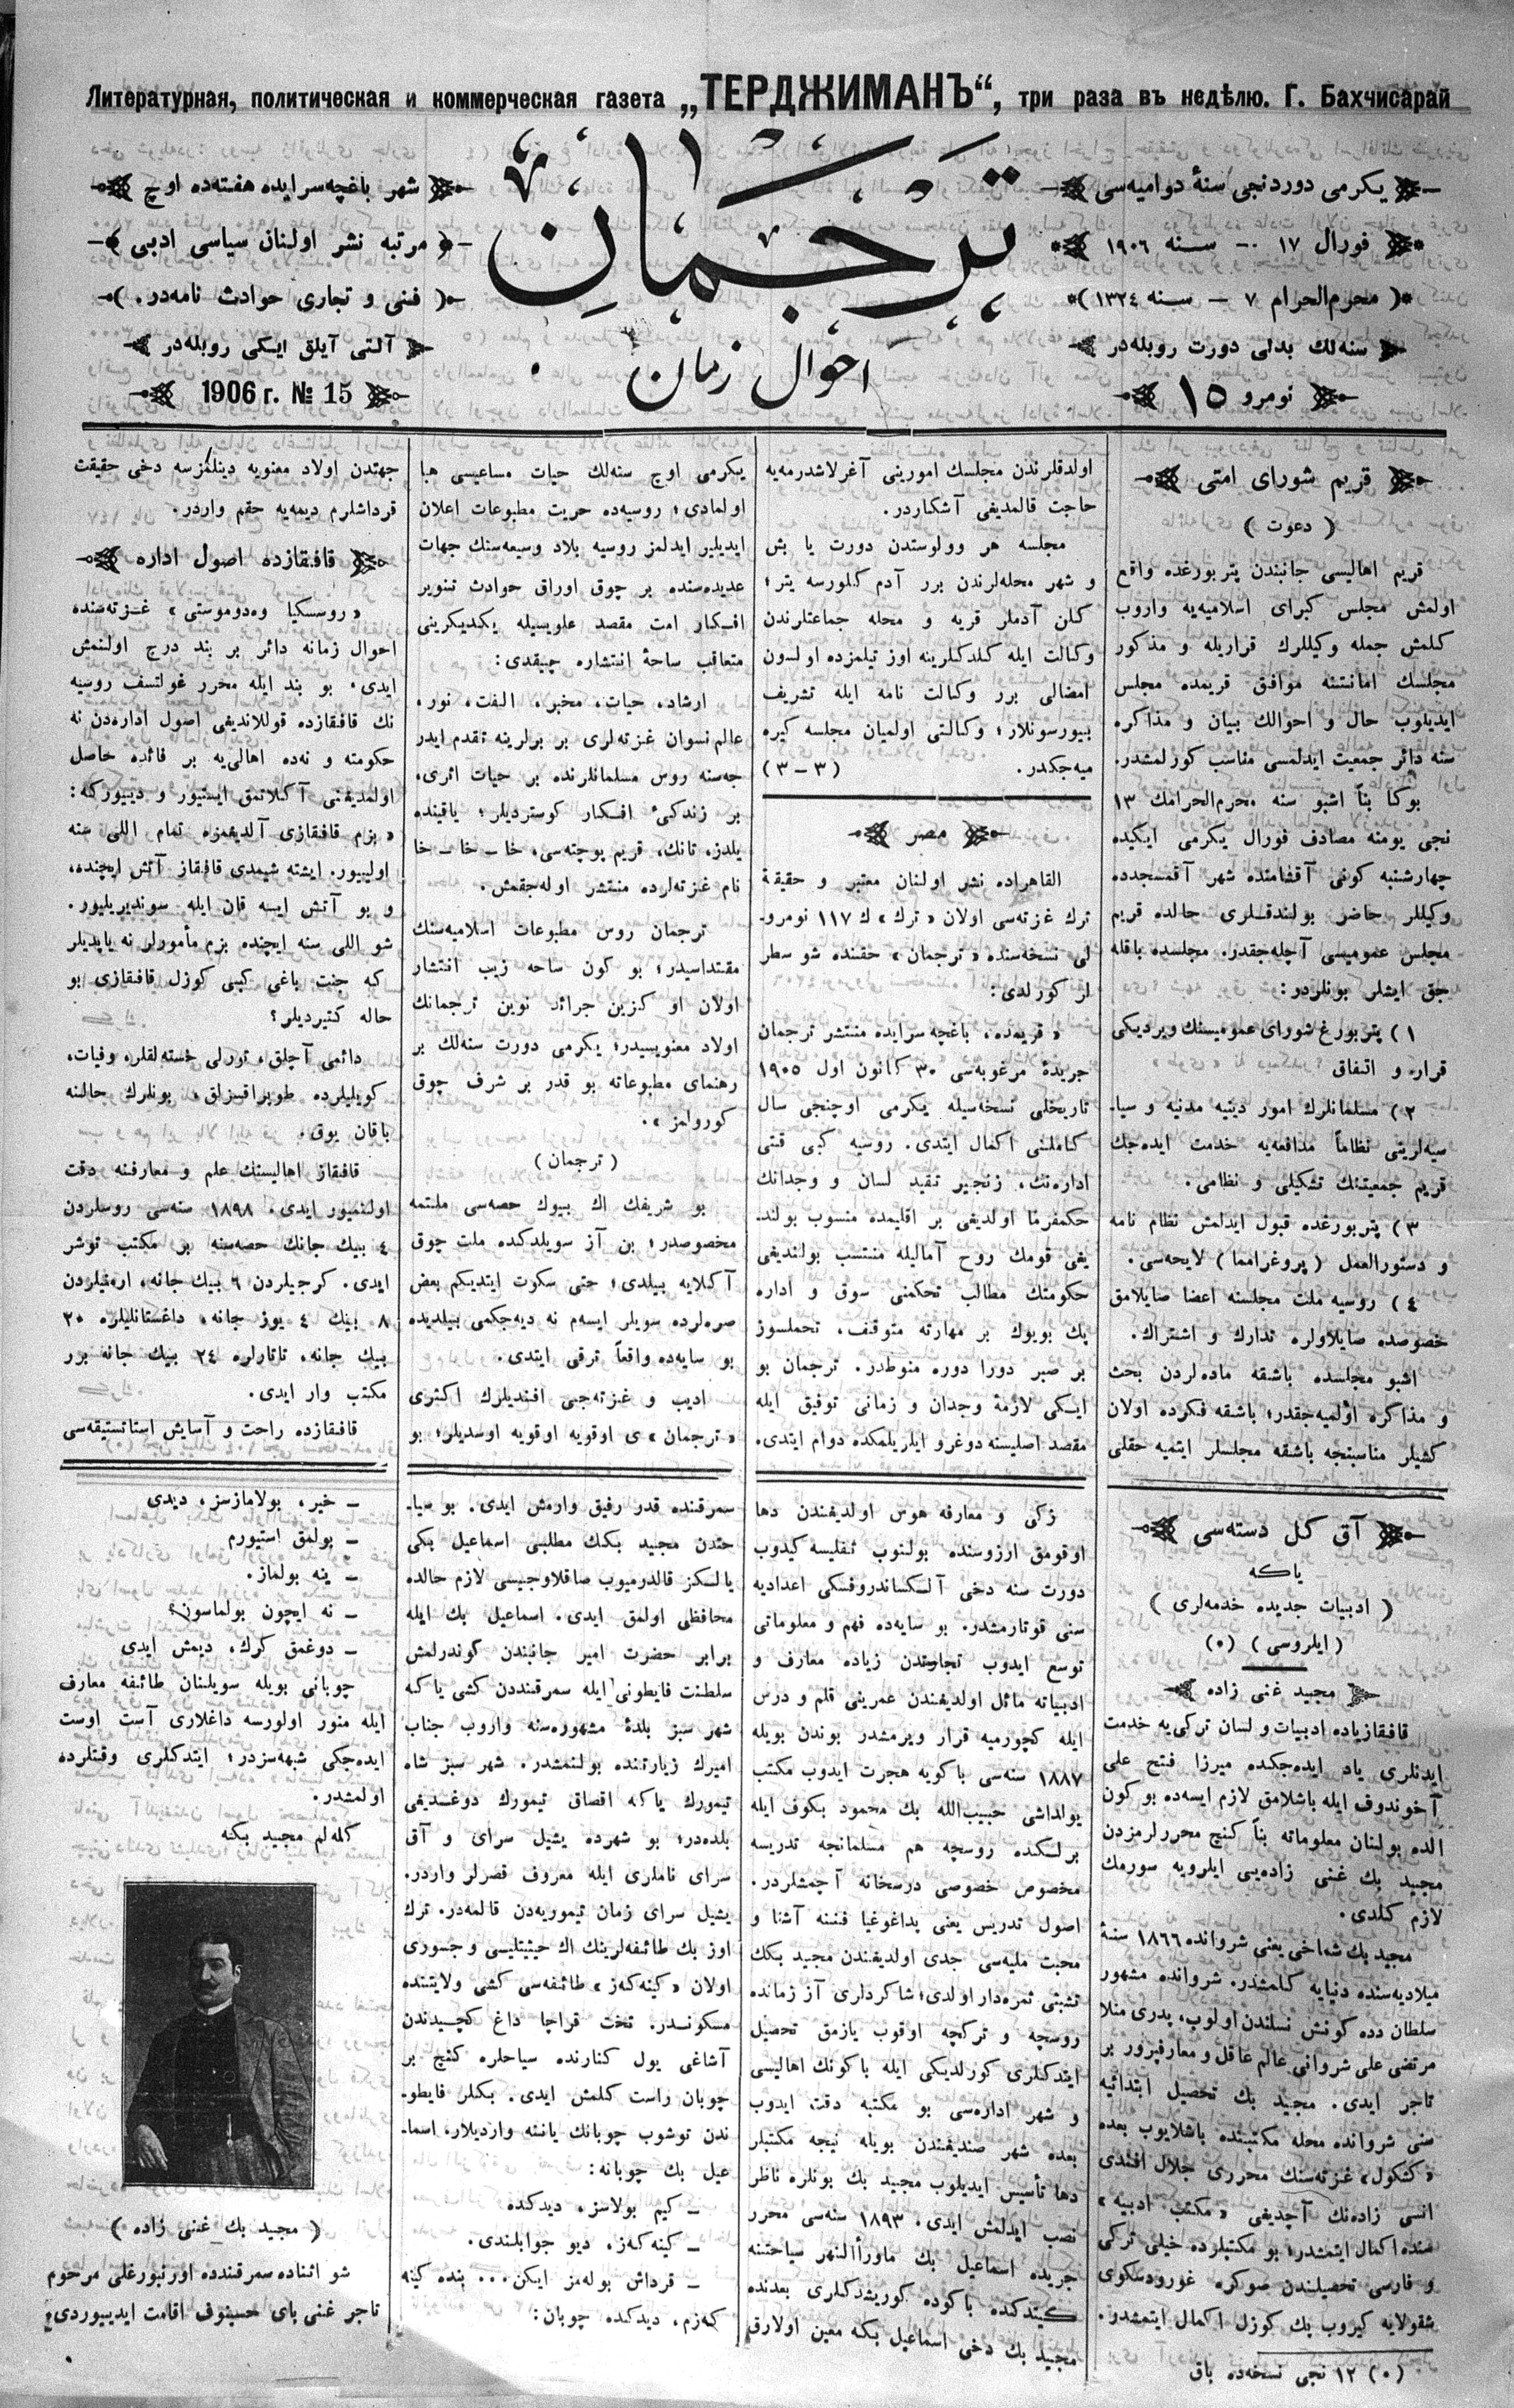 Литературная, политическая и коммерческая газета „ТЕРДЖИМАНЪ“, три раза въ недѣлю. Г. Бахчисарай
یكرمی دوردنجی سنهٔ دوامیه‌سی
فورال ١٧ — سنه ١٩٠٦
( محرم‌الحرام ٧ — سنه ١٣٢٤ )
سنه‌لك بدلی دورت روبله‌در
نومرو ١٥
ترجمان
احوال زمان
شهر باغچه‌سرایده هفته‌ده اوچ
مرتبه نشر اولنان سیاسی ادبی
( فنی و تجاری حوادث نامه‌در . )
آلتی آیلق ایكی روبله‌در
1906 г. № 15
قریم شورای امتی
( دعوت )
قریم اهالیسی جانبندن پتربورغده واقع
اولمش مجلس كبرای اسلامیه‌یه واروب
كلمش جمله وكیللرك قراریله و مذكور
مجلسك امانتنه موافق قریمده مجلس
ایدیلوب حال و احوالك بیان و مذاكره
سنه دائر جمعیت ایدلمسی مناسب كورلمشدر.
بوكا بناً اشبو سنه محرم‌الحرامك ١٣
نجی یومنه مصادف فورال یكرمی ایكیده
چهارشنبه كونی آقشامنده شهر آقمسجدده
وكیللر حاضر بولندقلری حالده قریم
مجلس عمومیسی آچله‌جقدر. مجلسده باقله
جق ایشلر بونلردر:
١ ) پتربورغ شورای عمومیسنك ویردیكی
قرار و اتفاق
٢ ) مسلمانلرك امور دینیه مدنیه و سیا-
سیه‌لرینی نظاماً مدافعه‌یه خدمت ایده‌جك
قریم جمعیتنك تشكیلی و نظامی.
٣ ) پتربورغده قبول ایدلمش نظام نامه
و دستورالعمل ( پروغرامما ) لایحه‌سی.
٤ ) روسیه ملت مجلسنه اعضا صایلامق
خصوصده صایلاولره تدارك و اشتراك.
اشبو مجلسده باشقه ماده‌لردن بحث
و مذاكره اولمیه‌جقدر؛ باشقه فكرده اولان
كشیلر مناسبتجه باشقه مجلسلر ایتمیه حقلی
اولدقلرندن مجلسك امورینی آغرلاشدرمه‌یه
حاجت قالمدیغی آشكاردر.
مجلسه هر وولوستدن دورت یا بش
و شهر محله‌لرندن برر آدم كلورسه یتر؛
كلن آدملر قریه و محله جماعتلرندن
وكالت ایله كلدكلرینه اوز تیلمزده اولسون
امضالی برر وكالت نامه ایله تشریف
بیورسونلار؛ وكالتی اولمیان مجلسه كیره
میه‌جكدر. (٣—٣)
مصر
القاهراده نشر اولنان معتبر و حقیقة
ترك غزته‌سی اولان « ترك » ك ١١٧ نومرو-
لی نسخه‌سنده « ترجمان » حقنده شو سطر
لر كورلدی:
« قریمده، باغچه سرایده منتشر ترجمان
جریدهٔ مرغوبه‌سی ٣٠ كانون اول ١٩٠٥
تاریخلی نسخه‌سیله یكرمی اوچنجی سال
كاملنی اكمال ایتدی. روسیه كبی قتی
اداره‌نك، زنجیر تقید لسان و وجدانك
حكمفرما اولدیغی بر اقلیمده منسوب بولند-
یغی قومك روح آمالیله منتسب بولندیغی
حكومتك مطالب تحكمنی سوق و اداره
پك بویوك بر مهارته متوقف، تحملسوز
بر صبر دورا دوره منوطدر. ترجمان بو
ایكی لازمهٔ وجدان و زمانی توفیق ایله
مقصد اصلیسنه دوغرو ایلریلمكده دوام ایتدی.
یكرمی اوچ سنه‌لك حیات مساعیسی هبا
اولمادی؛ روسیه‌ده حریت مطبوعات اعلان
ایدیلیر ایدلمز روسیه بلاد وسیعه‌سنك جهات
عدیده‌سنده بر چوق اوراق حوادث تنویر
افكار امت مقصد علویسیله یكدیكرینی
متعاقب ساحهٔ انتشاره چیقدی:
ارشاد، حیات، مخبر، الفت، نور،
عالم نسوان غزته‌لری بر برلرینه تقدم ایدر
جه‌سنه روس مسلمانلرنده بر حیات اثری،
بر زندكیٔ افكار كوستردیلر؛ یاقینده
یلدز، تانك، قریم بوچنه‌سی، خا — خا — خا
نام غزته‌لرده منتشر اوله‌جقمش.
ترجمان روس مطبوعات اسلامیه‌سنك
مقتداسیدر؛ بو كون ساحه زیب انتشار
اولان او كزین جرائد نوین ترجمانك
اولاد معنویسیدر؛ یكرمی دورت سنه‌لك بر
رهنمای مطبوعاته بو قدر بر شرف چوق
كورولمز ».
( ترجمان )
بو شریفك اك بیوك حصه‌سی ملتمه
مخصوصدر؛ بن آز سویلدكده ملت چوق
آكلایه بیلدی؛ حتی سكوت ایتدیكم بعض
صره‌لرده سویلر ایسه‌م نه دیه‌جكمی بیلدیده
بو سایه‌ده واقعاً ترقی ایتدی.
ادیب و غزته‌جی افندیلرك اكثری
« ترجمان » ی اوقویه اوقویه اوسدیلر؛ بو
جهتدن اولاد معنویه دینلمزسه دخی حقیقت
قرداشلرم دیمه‌یه حقم واردر.
قافقازده اصول اداره
« روسسكیا وه‌دوموستی » غزته‌سنده
احوال زمانه دائر بر بند درج اولنمش
ایدی. بو بند ایله محرر غولتسف روسیه
نك قافقازده قوللاندیغی اصول اداره‌دن نه
حكومته و نه‌ده اهالی‌یه بر فائده حاصل
اولمدیغنی آكلاتمق ایستیور و دییوركه:
« بزم قافقازی آلدیغمزه تمام اللی سنه
اولییور. ایشته شیمدی قافقاز آتش ایچنده،
و بو آتش ایسه قان ایله سوندیریلیور.
شو اللی سنه ایچنده بزم مأمورلر نه یاپدیلر
كه جنت باغی كبی كوزل قافقازی بو
حاله كتیردیلر؟
دائمی آچلق، تورلی خسته‌لقلر، وفیات،
كویلیلرده طوپراقسزلق، بونلرك حالنه
باقان یوق.
قافقاز اهالیسنك علم و معارفنه دقت
اولنمیور ایدی. ١٨٩٨ سنه‌سی روسلردن
٤ بیك جانك حصه‌سنه بر مكتب توشر
ایدی. كرجیلردن ٦ بیك جانه، ارمنیلردن
٨ بیك ٤ یوز جانه، داغستانلیلره ٣٠
بیك جانه، تاتارلره ٢٤ بیك جانه برر
مكتب وار ایدی.
قافقازده راحت و آسایش استاتستیقه‌سی
آق كل دسته‌سی
یاكه
( ادبیات جدیده خدمه‌لری )
( ایلروسی ) (٠)
مجید غنی زاده
قافقازیاده ادبیات و لسان تركی‌یه خدمت
ایدنلری یاد ایده‌جكده میرزا فتح علی
آخوندوف ایله باشلامق لازم ایسه‌ده بو كون
الده بولنان معلوماته بناً كنج محررلرمزدن
مجید بك غنی زاده‌یی ایلرویه سورمك
لازم كلدی.
مجید بك شماخی یعنی شروانده ١٨٦٦ سنهٔ
میلادیه‌سنده دنیایه كلمشدر. شروانده مشهور
سلطان دده كونش نسلندن اولوب، پدری منلا
مرتضی علی شروانی عالم عاقل و معارفپرور بر
تاجر ایدی. مجید بك تحصیل ابتدائیه
سنی شروانده محله مكتبنده باشلایوب بعده
« كشكول » غزته‌سنك محرری جلال افندی
انسی زاده‌نك آچدیغی « مكتب ادبیه »
سنده اكمال ایتمشدر؛ بو مكتبلرده خیلی تركی
و فارسی تحصیلندن صوكره غورودسكوی
شقولایه كیروب بك كوزل اكمال ایتمشدر.
(٠) ١٢ نجی نسخه‌ده باق
زكی و معارفه هوس اولدیغندن دها
اوقومق ارزوسنده بولنوب تفلیسه كیدوب
دورت سنه دخی آلكساندروفسكی اعدادیه
سنی قوتارمشدر. بو سایه‌ده فهم و معلوماتی
توسع ایدوب تجارتدن زیاده معارف و
ادبیاته مائل اولدیغندن عمرینی قلم و درس
ایله كچورمیه قرار ویرمشدر بوندن بویله
١٨٨٧ سنه‌سی باكویه هجرت ایدوب مكتب
یولداشی حبیب‌الله بك محمود بكوف ایله
برلكده روسچه هم مسلمانجه تدریسه
مخصوص خصوصی درسخانه آچمشلردر.
اصول تدریس یعنی پداغوغیا فننه آشنا و
محبت ملیه‌سی جدی اولدیغندن مجید بكك
تشبثی ثمره‌دار اولدی؛ شاكرداری آز زمانده
روسچه و تركچه اوقوب یازمق تحصیل
ایتدكلری كورلدیكی ایله باكونك اهالیسی
و شهر اداره‌سی بو مكتبه دقت ایدوب
بعده شهر صندیغندن بویله نیجه مكتبلر
دها تأسیس ایدیلوب مجید بك بونلره ناظر
نصب ایدلمش ایدی. ١٨٩٣ سنه‌سی محرر
جریده اسماعیل بك ماورأالنهر سیاحتنه
كیتدكده باكوده كوریشدكلری بعدنده
مجید بك دخی اسماعیل بكه معین اولارق
سمرقنده قدر رفیق وارمش ایدی. بو سیا-
حتدن مجید بكك مطلبی اسماعیل بكی
یالكز قالدرمیوب صاقلاوجیسی لازم حالده
محافظی اولمق ایدی. اسماعیل بك ایله
برابر حضرت امیر جانبندن كوندرلمش
سلطنت فایطونی ایله سمرقنددن كشی یاكه
شهر سبز بلدهٔ مشهوره‌سنه واروب جناب
امیرك زیارتنده بولنمشدر. شهر سبز شاه
تیمورك یاكه اقصاق تیمورك دوغدیغی
بلده‌در؛ بو شهرده یشیل سرای و آق
سرای ناملری ایله معروف قصرلر واردر.
یشیل سرای زمان تیموریه‌دن قالمه‌در. ترك
اوز بك طائفه‌لرینك اك حیثیتلیسی و جسوری
اولان « كینه كه‌ز » طائفه‌سی كشی ولایتنده
مسكوندر. تخت قراچا داغ كچیدندن
آشاغی یول كنارنده سیاحلره كنج بر
چوبان راست كلمش ایدی. بكلر فایطو-
ندن توشوب چوبانك یاننه واردیلار، اسما-
عیل بك چوبانه:
— كیم بولاسز، دیدكده
— كینه كه‌ز، دیو جوابلندی.
— قرداش بوله‌مز ایكن... بنده كینه
كه‌زم، دیدكده چوبان:
— خیر، بولامازسز، دیدی
— بولمق استیورم
— ینه بولماز.
— نه ایچون بولماسون؟
— دوغمق كرك، دیمش ایدی
چوبانی بویله سویلنان طائفه معارف
ایله منور اولورسه داغلاری آست اوست
ایده‌جكی شبهه‌سزدر؛ ایتدكلری وقتلرده
اولمشدر.
كلمه‌لم مجید بكه
( مجید بك غنی زاده )
شو اثناده سمرقندده اورنبورغلی مرحوم
تاجر غنی بای حسینوف اقامت ایدییوردی؛